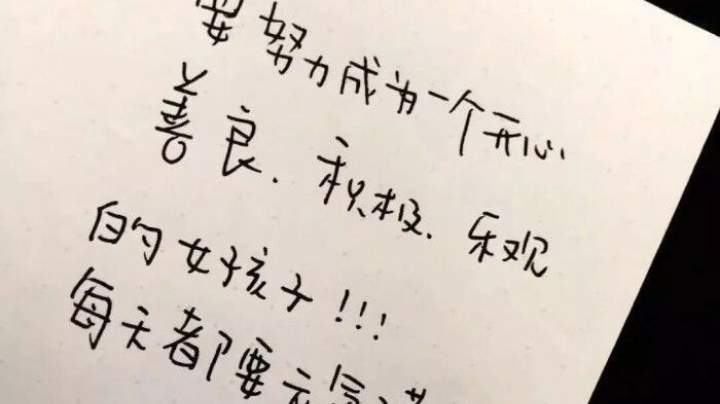 要努力成为一个开心
善良.积极.乐观
的女孩子!!!
每天都要元气满